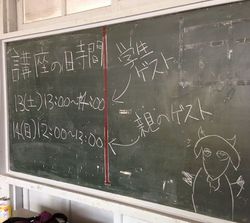 講座の日時間
13(土)13:00〜14:00
14(日)12:00〜13:00
学生
ゲスト
親のゲスト